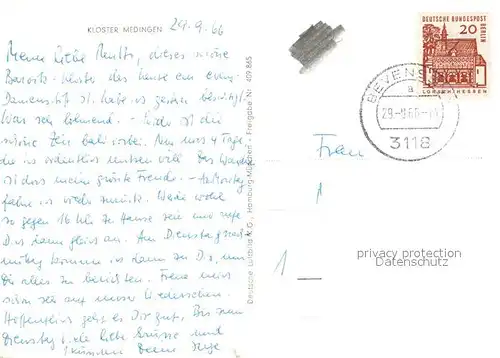 KLOSTER MEDINGEN 29.9.66
Meine liebe Mutti, dieses schöne
Barock-Kloster das heute ein evang.
Damenstift ist, habe ich gestern besichtigt.
War sehr lohnend. - Leider ist die
schöne Zeit bald vorbei. Nun noch 4 Tage
die ich ordentlich nutzen will. Das Wandern
ist doch meine grösste Freude. -
fahre ich wieder zurück. Werde wohl
so gegen 16 Uhr zu Hause sein und rufe
Dich dann gleich an. Am Dienstag nach-
mittag komme ich dann zu Dir, um
Dir alles zu berichten. Freue mich
schon sehr auf unser Wiedersehen.
Hoffentlich geht es Dir gut. Bis zum
Dienstag viele liebe Grüsse und
Deine
Deutsche Luftbild K.G., Hamburg-München - Freigabe Nr. 409 865
DEUTSCHE BUNDESPOST
BERLIN
20
LORSCH/HESSEN
BEVENSEN
a
29.-9.66.
3118
Frau
privacy protection
Datenschutz